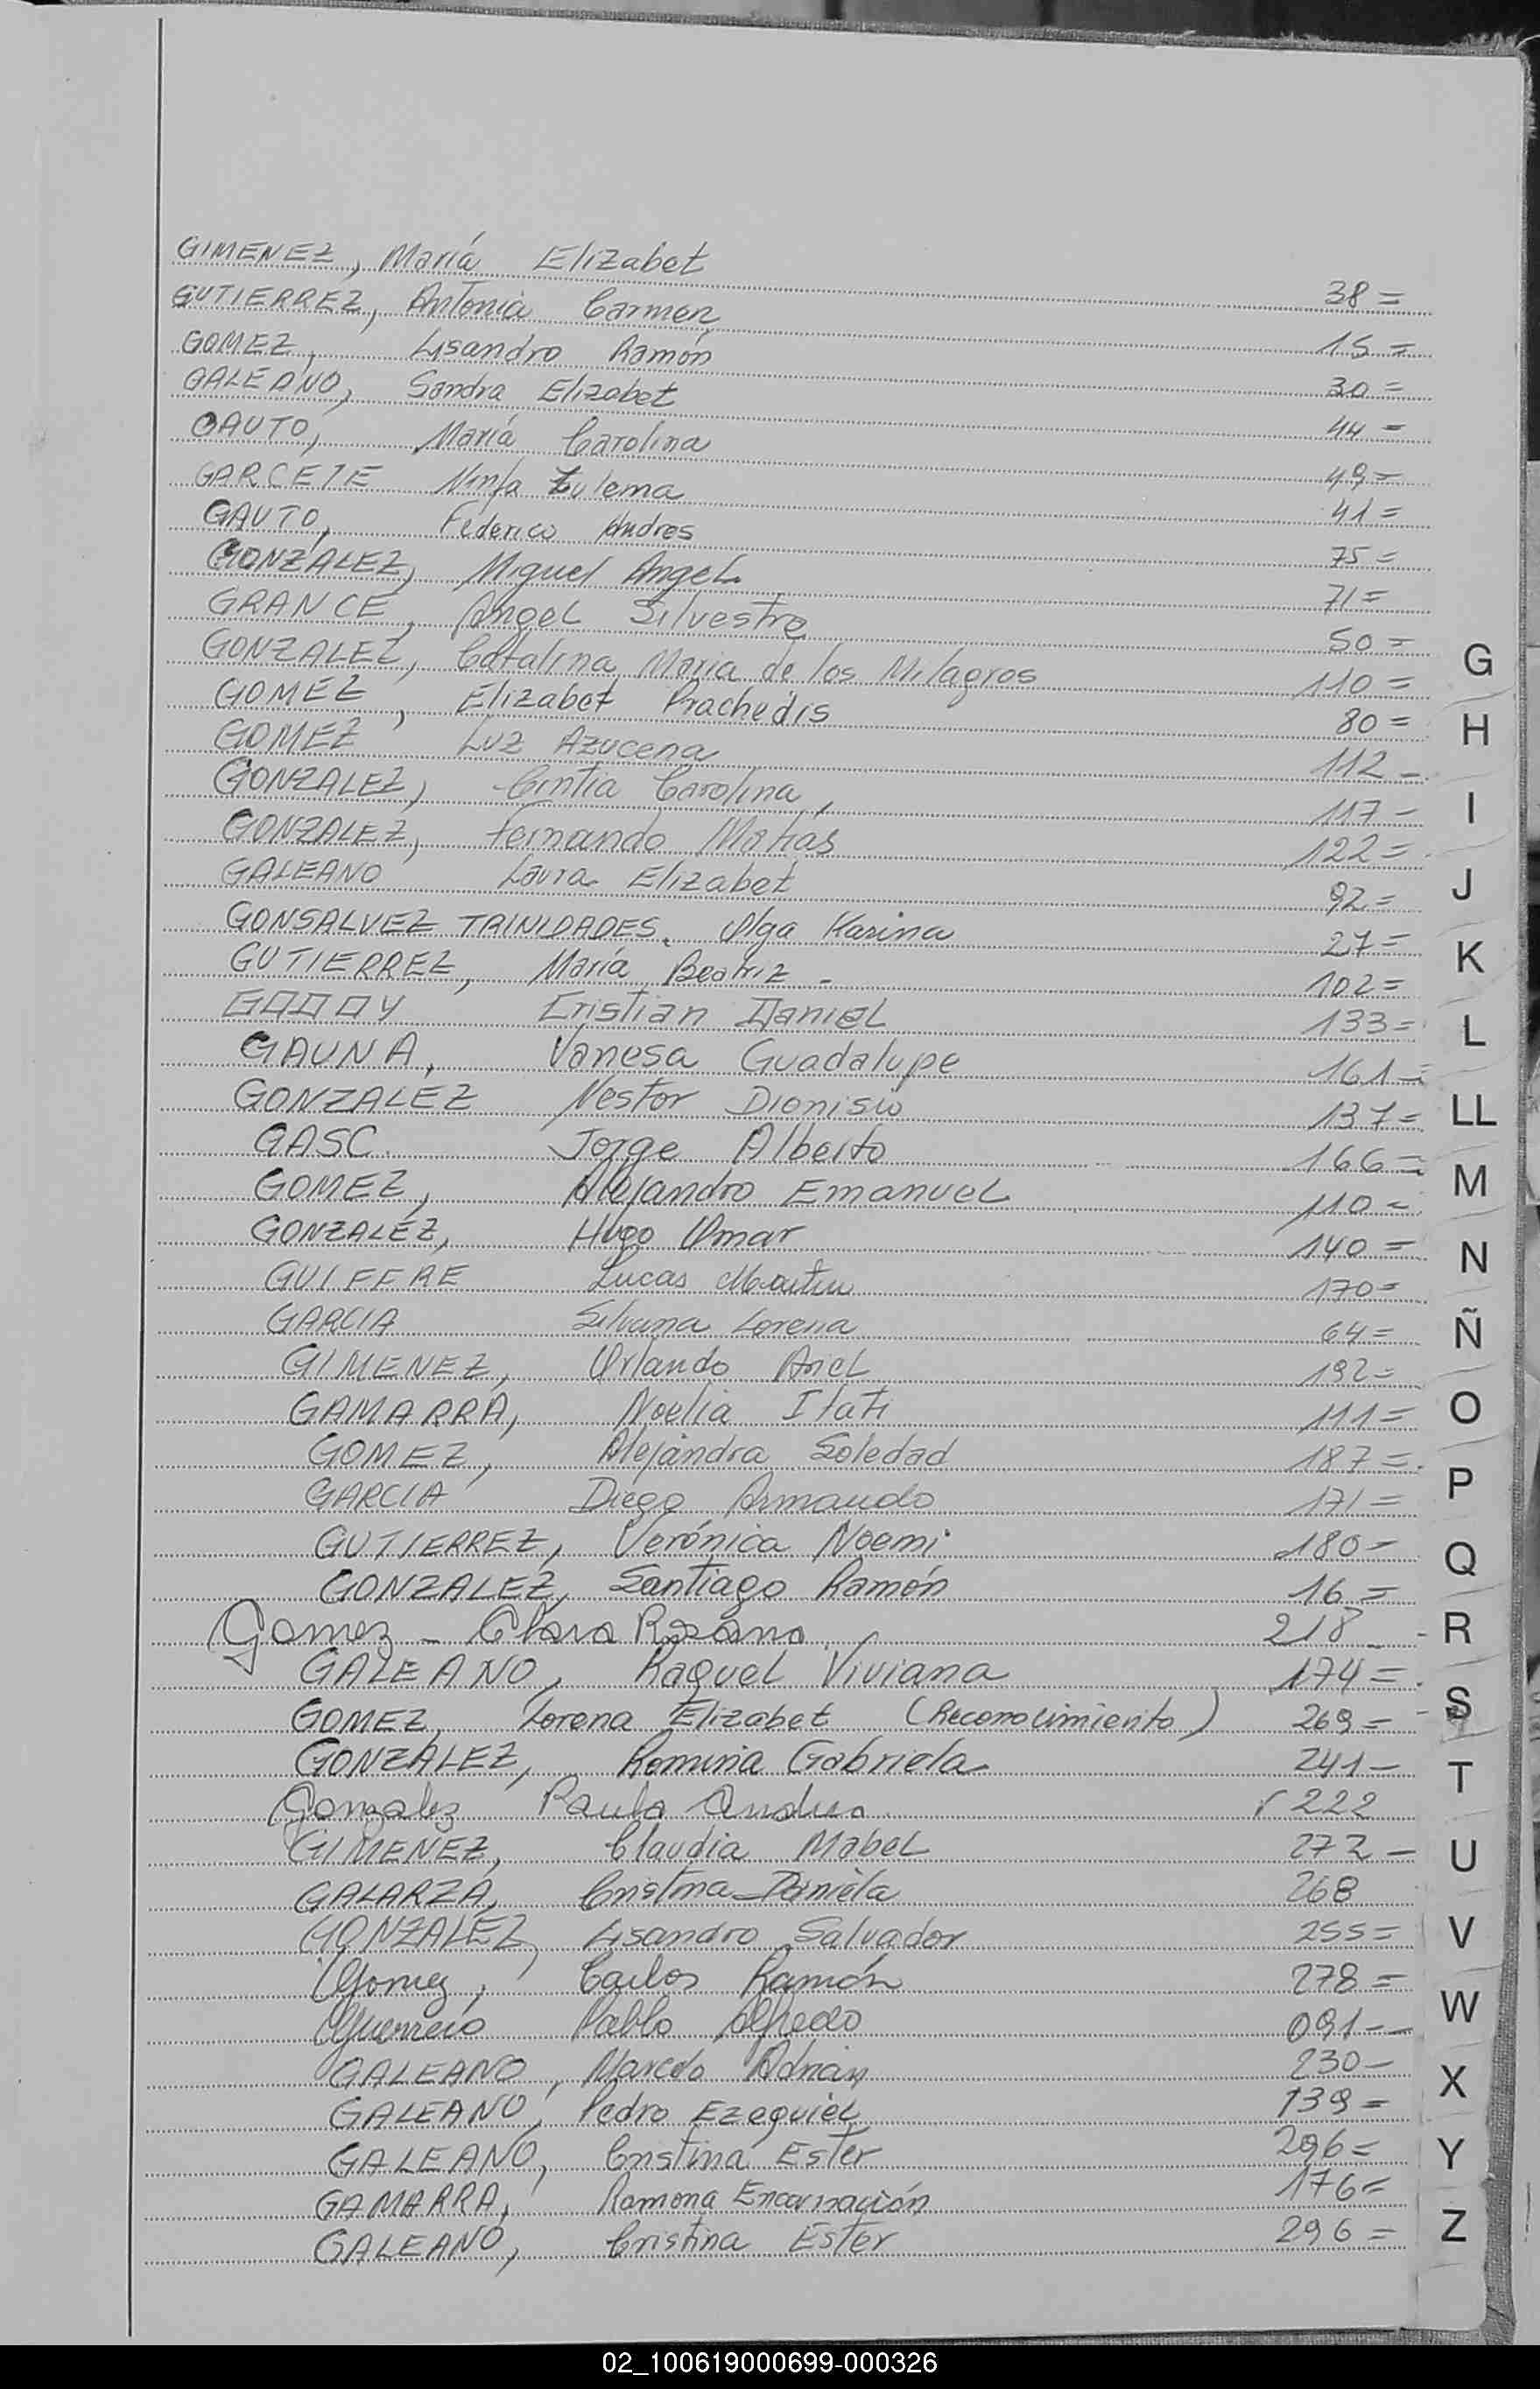 GIMENEZ, María Elizabet 38=
GUTIERREZ, Antonia Carmen 15=
GOMEZ, Lisandro Ramón 30=
GALEANO, Sandra Elizabet 44=
GAUTO, María Carolina 49=
GARCETE Ninfa Zulema 41=
GAUTO, Federico Andres 75=
GONZALEZ, Miguel Angel 71=
GRANCE, Angel Silvestre 50=
GONZALEZ, Catalina Maria de los Milagros 110=
GOMEZ, Elizabet Prachedis 80=
GOMEZ Luz Azucena 112-
GONZALEZ, Cintia Carolina, 117-
GONZALEZ, Fernando Matías 122=
GALEANO Laura Elizabet 92=
GONSALVEZ TRINIDADES, Olga Karina 27=
GUTIERREZ, María Beatriz - 102=
GODOY Cristian Daniel 133=
GAUNA, Vanesa Guadalupe 161=
GONZALEZ Nestor Dionisio 137=
GASC. Jorge Alberto 166=
GOMEZ, Alejandro Emanuel 110=
GONZALEZ, Hugo Omar 140=
GUIFFRE Lucas Martin 170=
GARCIA Silvana Lorena 64=
GIMENEZ, Orlando Ariel 192=
GAMARRA, Noelia Itati 111=
GOMEZ, Alejandra Soledad 187=
GARCIA Diego Armando 171=
GUTIERREZ, Verónica Noemi 180-
GONZALEZ, Santiago Ramón 16=
Gomez - Clara Rosana 218-
GALEANO, Raquel Viviana 174=
GOMEZ, Lorena Elizabet (Reconocimiento) 269=
GONZALEZ, Romina Gabriela 241-
Gonzalez Paula Andrea 222
GIMENEZ, Claudia Mabel 272-
GALARZA, Cristina Daniela 268
GONZALEZ, Lisandro Salvador 255=
Gomez, Carlos Ramón 278=
Guerrero Pablo Alfredo 091--
GALEANO, Marcelo Adrián 230-
GALEANO, Pedro Ezequiel 139=
GALEANO, Cristina Ester 296=
GAMARRA, Ramona Encarnación 176=
GALEANO, Cristina Ester 296=
G
H
I
J
K
L
LL
M
N
Ñ
O
P
Q
R
S
T
U
V
W
X
Y
Z
02_100619000699-000326